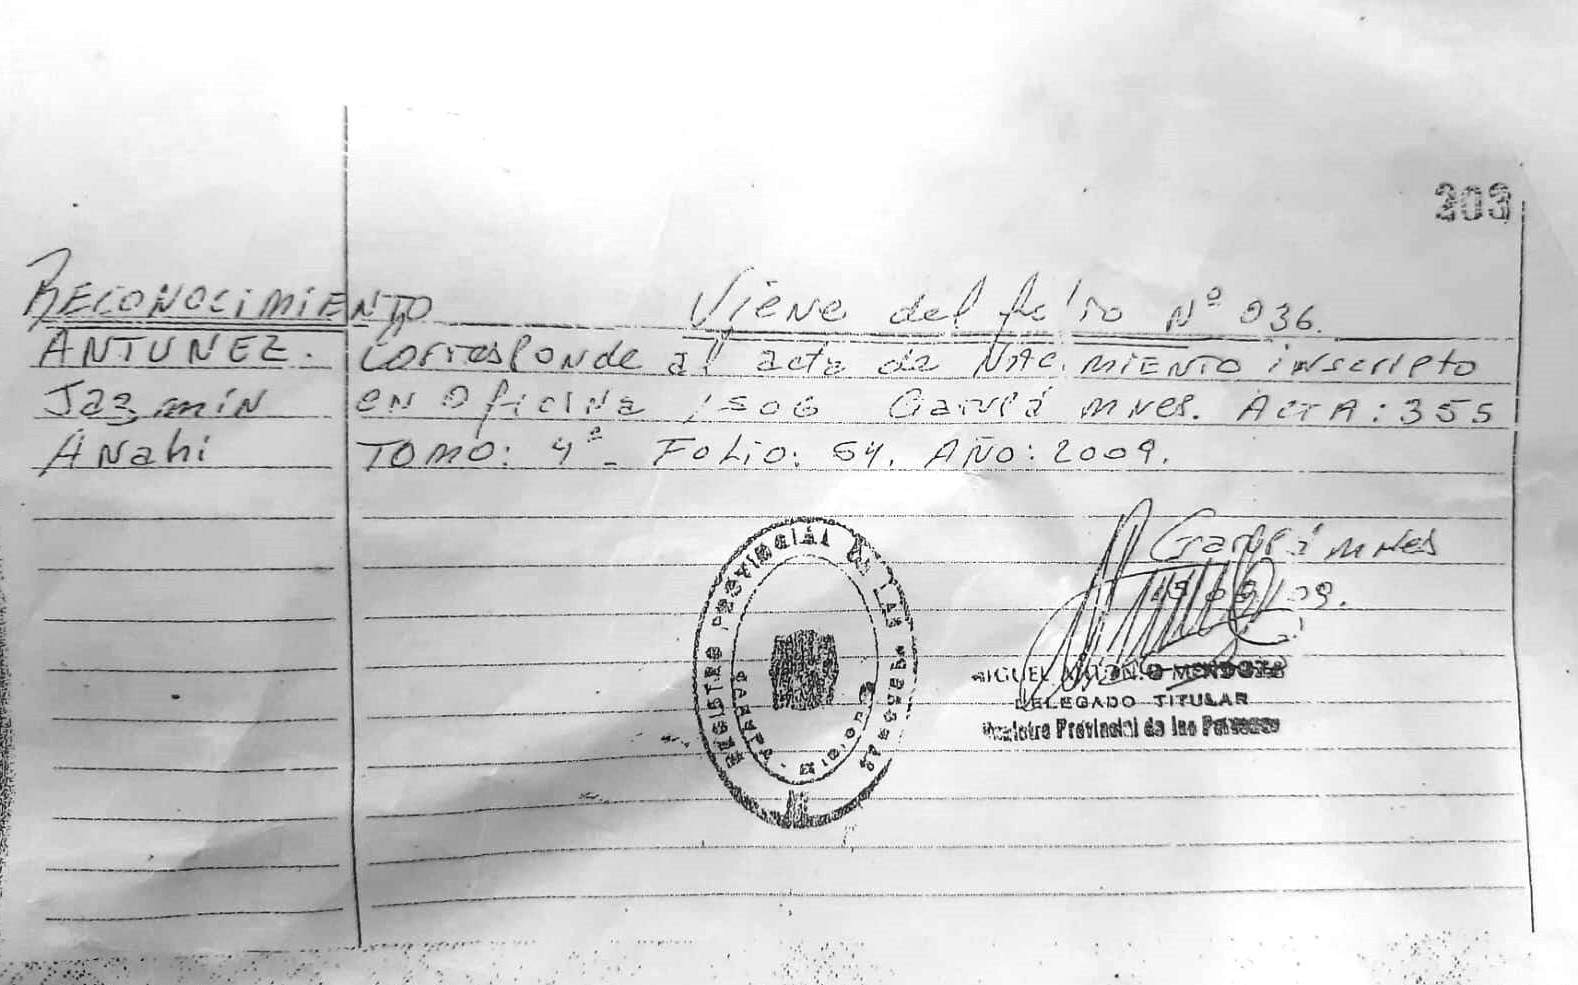 203
RECONOCIMIENTO Viene del folio Nº 036.
ANTUNEZ. Corresponde al acta de NACIMIENTO inscripto
Jazmin en Oficina 1506 Garupá mnes. ACTA: 355
Anahi TOMO: 4º - Folio: 54. AÑO: 2009.
REGISTRO PROVINCIAL DE LAS PERSONAS
Garupá mnes
MIGUEL ANTONIO MENDOZA
DELEGADO TITULAR
Registro Provincial de las Personas